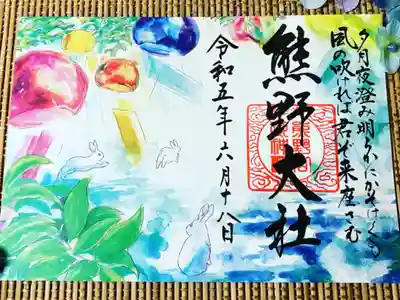 夕月夜澄み明らかにかそけくも
風の吹ければ君ぞ来座さむ
熊野大社
令和五年六月十八日